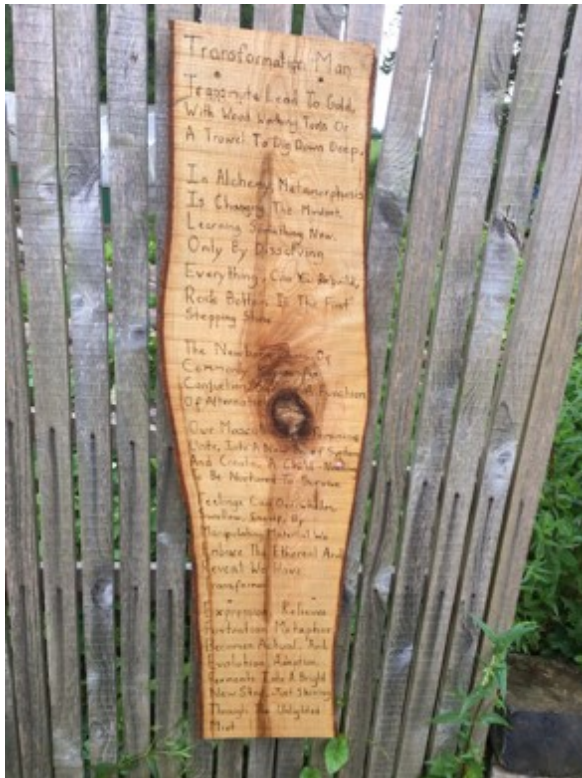 Transformation Man
Transmute Lead To Gold,
With Wood Working Tools Or
A Trowel To Dig Down Deep.
In Alchemy Metamorphosis
Is Changing The Mindset
Learning Something New.
Only By Dissolving
Everything, Can You Rebuild,
Rock Bottom Is The First
Stepping Stone
The Or
Common
A Function
Of
Our
Unite, Into A System
And Create, A Child
Be Nurtured To Survive
Feelings Can Our
Swallow, By
Manipulating Material We
Embrace The Ethereal And
Reveal We Have
Transformed
Expression, Relieves
Frustration Metaphor
Becomes Actual, And
Evolution, Adaption,
Ferments Into A Bright
New Star, Just Shining
Through The Unlighted
Mist